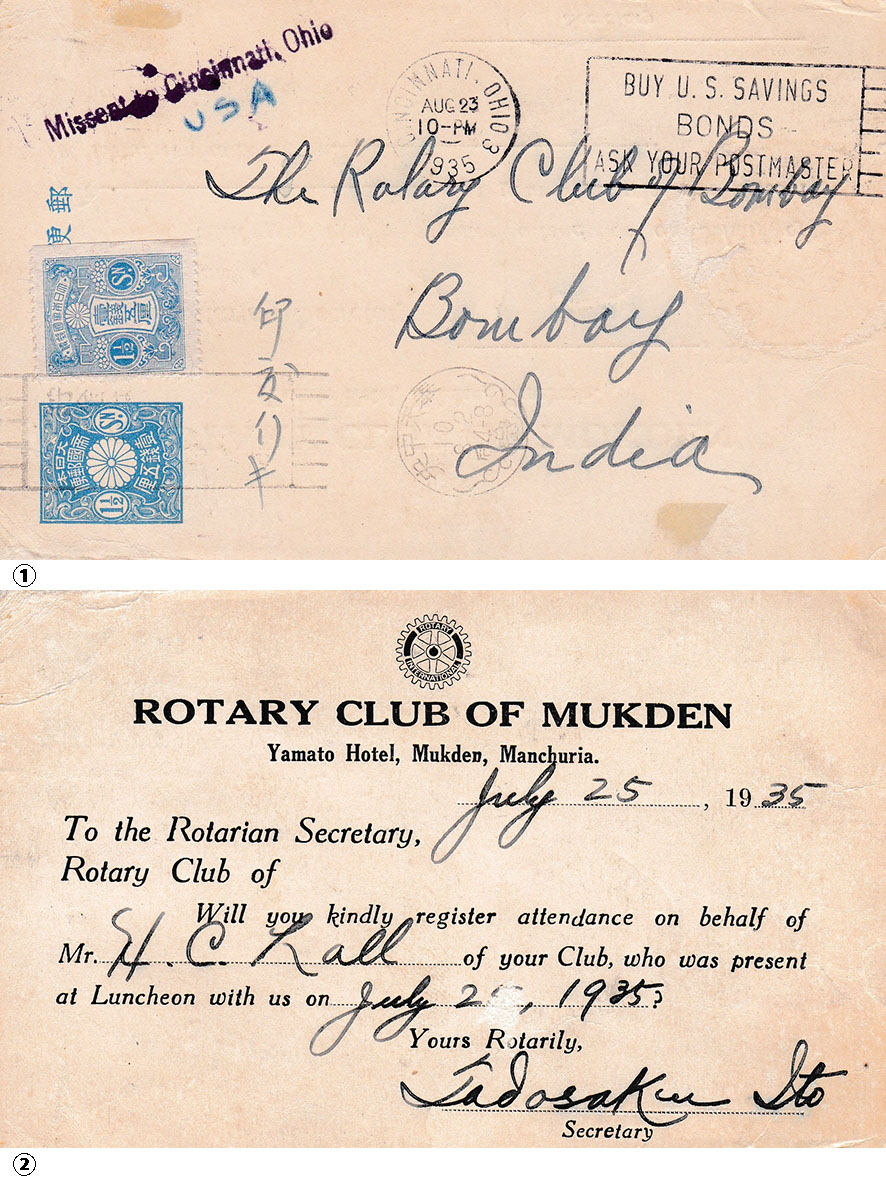 Missent to Cincinnati, Ohio
USA
CINCINNATI, OHIO 3
AUG 23
10-PM
1935
BUY U. S. SAVINGS
BONDS
ASK YOUR POSTMASTER
The Rotary Club of Bombay
Bombay
India
郵便
壹錢五厘
SN.
1½
印度行キ
SN.
大日本帝國郵便
壹錢五厘
1½
①
ROTARY
INTERNATIONAL
ROTARY CLUB OF MUKDEN
Yamato Hotel, Mukden, Manchuria.
July 25, 1935
To the Rotarian Secretary,
Rotary Club of
Will you kindly register attendance on behalf of
Mr. H. C. Lall of your Club, who was present
at Luncheon with us on July 25, 1935?
Yours Rotarily,
Tadosaku Ito
Secretary
②